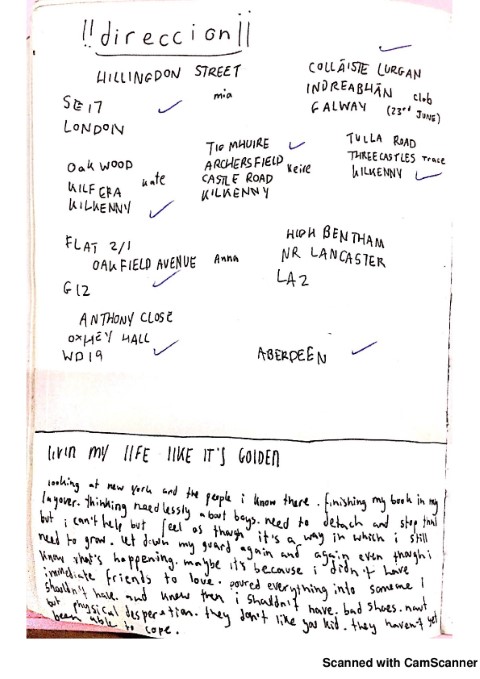 !!direccion!!
HILLINGDON STREET
mia
SE17
LONDON
COLLÁISTE LURGAN
INDREABHÁN club
GALWAY (23rd JUNE)
OAKWOOD
KILFERA kate
KILKENNY
TIG MHUIRE
ARCHERSFIELD
CASTLE ROAD Keire
KILKENNY
TULLA ROAD
THREECASTLES Trace
KILKENNY
FLAT 2/1
OAKFIELD AVENUE Anna
G12
HIGH BENTHAM
NR LANCASTER
LA2
ANTHONY CLOSE
OXHEY HALL
WD19
ABERDEEN
livin MY LIFE LIKE IT'S GOLDEN
looking at new york and the people i know there. finishing my book in my
layover. thinking needlessly about boys. need to detach and stop
but i can't help but feel as though it's a way in which i still
need to grow. let down my guard again and again even though i
know what's happening. maybe it's because i didn't have
immediate friends to love. poured everything into someone i
shouldn't have. and knew then i shouldn't have. bad shoes.
but physical desperation. they don't like you kid. they haven't yet
been able to cope.
Scanned with CamScanner